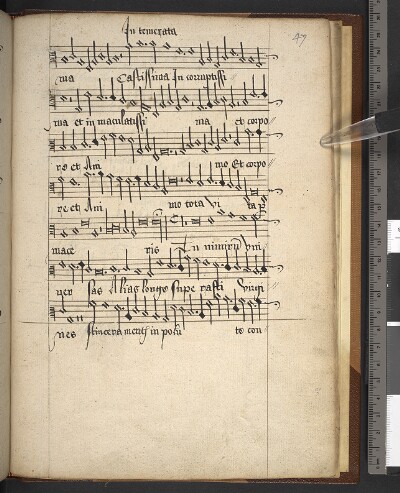 In temerata
47
ma Castissima In corruptissi
ma et in maculatissi ma et corpo
re et Ani mo Et corpo
re et Ani mo tota Vi
mace ris Tu nimirum Vni
ver sas Alias longo supe rasti Virgi
nes sincera mentis in